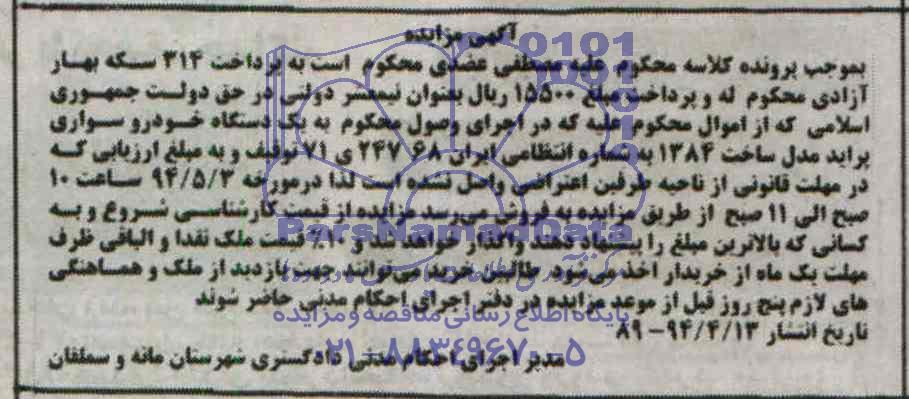 آگهی مزایده
بموجب پرونده کلاسه محکوم علیه مصطفی عضدی محکوم است به پرداخت ۳۱۴ سکه بهار
آزادی محکوم له و پرداخت مبلغ ۱۵۵۰۰ ریال بعنوان نیمعشر دولتی در حق دولت جمهوری
اسلامی که از اموال محکوم علیه که در اجرای وصول محکوم به یک دستگاه خودرو سواری
پراید مدل ساخت ۱۳۸۴ به شماره انتظامی ایران ۶۸ ۲۴۷ ی ۷۱ توقیف و به مبلغ ارزیابی که
در مهلت قانونی از ناحیه طرفین اعتراضی واصل نشده است لذا درمورخه ۹۴/۵/۳ ساعت ۱۰
صبح الی ۱۱ صبح از طریق مزایده به فروش می‌رسد مزایده از قیمت کارشناسی شروع و به
کسانی که بالاترین مبلغ را پیشنهاد دهند واگذار خواهد شد و ۱۰٪ قیمت ملک نقدا و الباقی ظرف
مهلت یک ماه از خریدار اخذ می‌شود. طالبین خرید می‌توانند جهت بازدید از ملک و هماهنگی
های لازم پنج روز قبل از موعد مزایده در دفتر اجرای احکام مدنی حاضر شوند
تاریخ انتشار ۹۴/۴/۱۳-۸۹
مدیر اجرای احکام مدنی دادگستری شهرستان مانه و سملقان
ParsNamadData
پایگاه اطلاع رسانی مناقصه و مزایده
۰۲۱-۸۸۳۴۹۶۷۰-۵